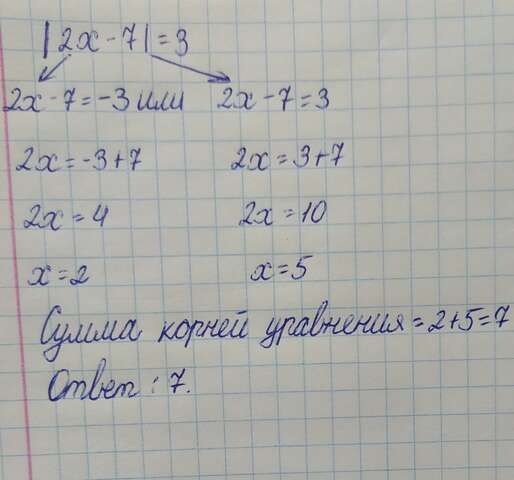 |2x-7|=3
2x-7=-3 или 2x-7=3
2x=-3+7 2x=3+7
2x=4 2x=10
x=2 x=5
Сумма корней уравнения=2+5=7
Ответ: 7.